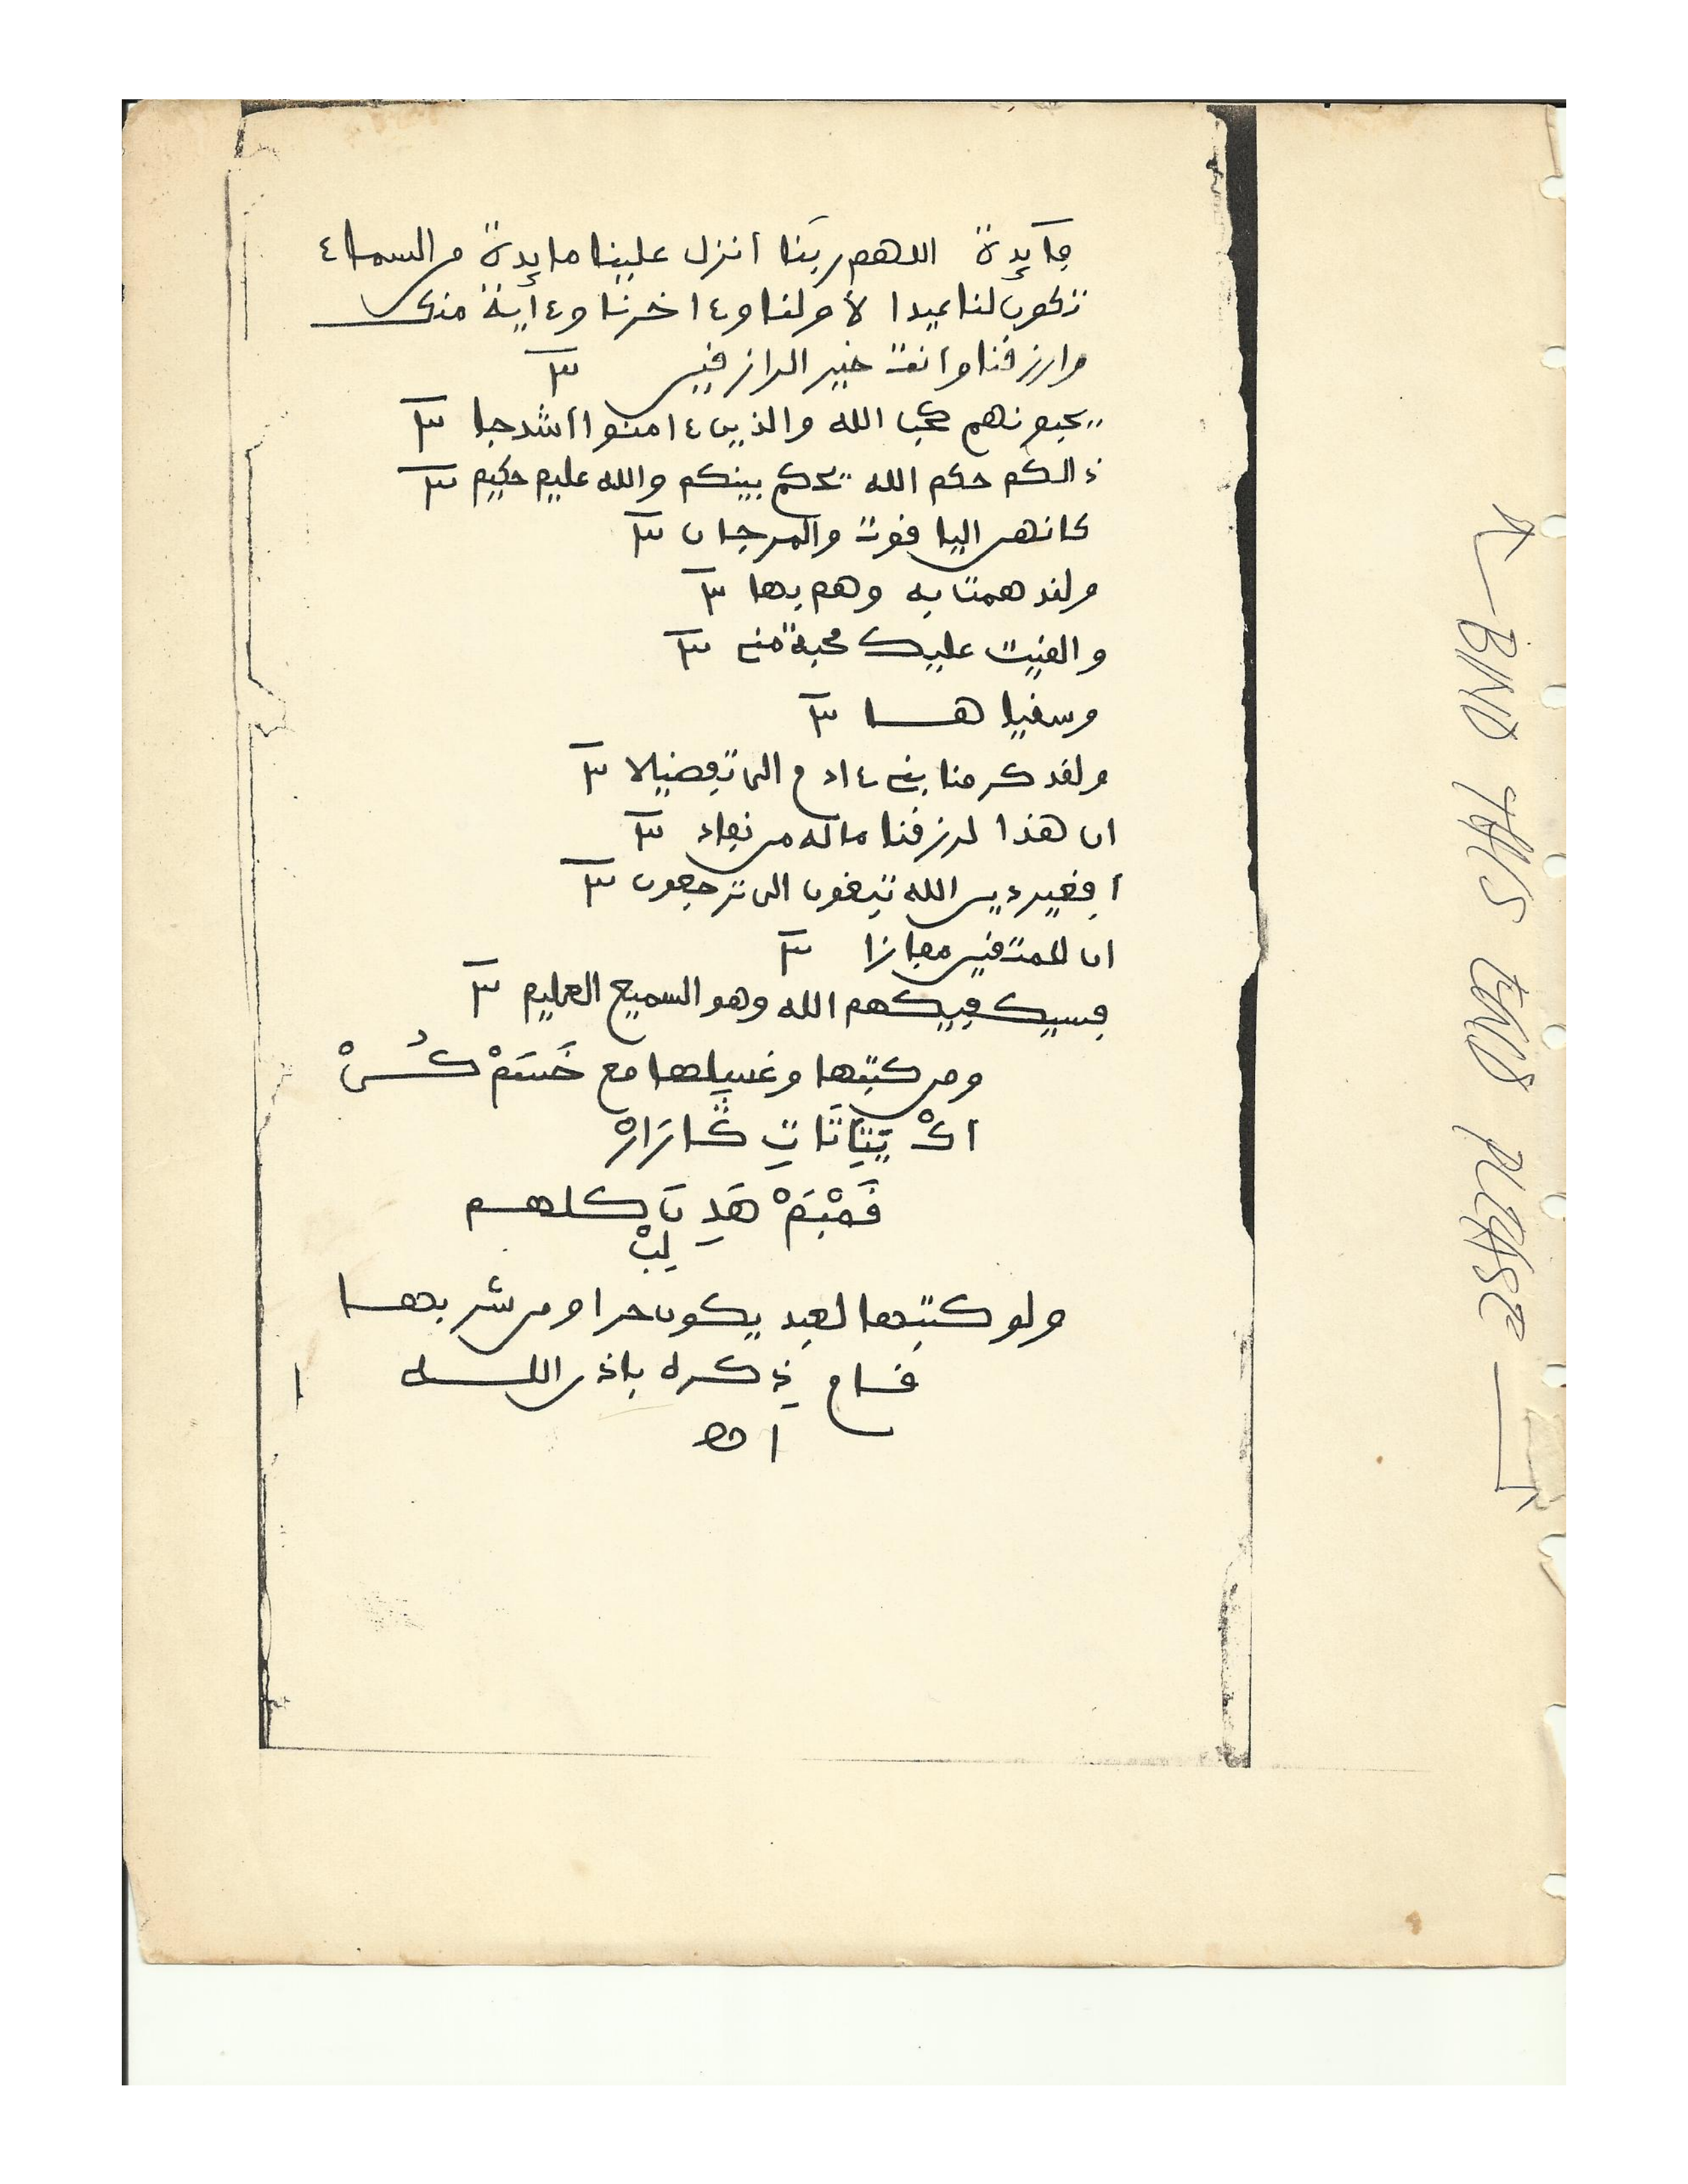 فايدة اللهم ربنا أنزل علينا مايدة من السماء
تكون لنا عيدا لأولنا وءاخرنا وءاية منك
وارزقنا وأنت خير الرازقين ٣
يحبونهم كحب الله والذين ءامنوا أشد حبا ٣
ذالكم حكم الله يحكم بينكم والله عليم حكيم ٣
كانهن الياقوت والمرجان ٣
ولقد همت به وهم بها ٣
والقيت عليك محبة مني ٣
وسقيا هــا ٣
ولقد كرمنا بني ءادم الى تفضيلا ٣
ان هذا لرزقنا ماله من نفاد ٣
أفغير دين الله تبغون الى ترجعون ٣
ان للمتقين مفازا ٣
فسيكفيكهم الله وهو السميع العليم ٣
ومن كتبها وغسلها مع
ولو كتبتها لعبد يكون حرا ومن شربها
قام ذكره باذن اللــه
اهـ
BIND THIS END PLEASE